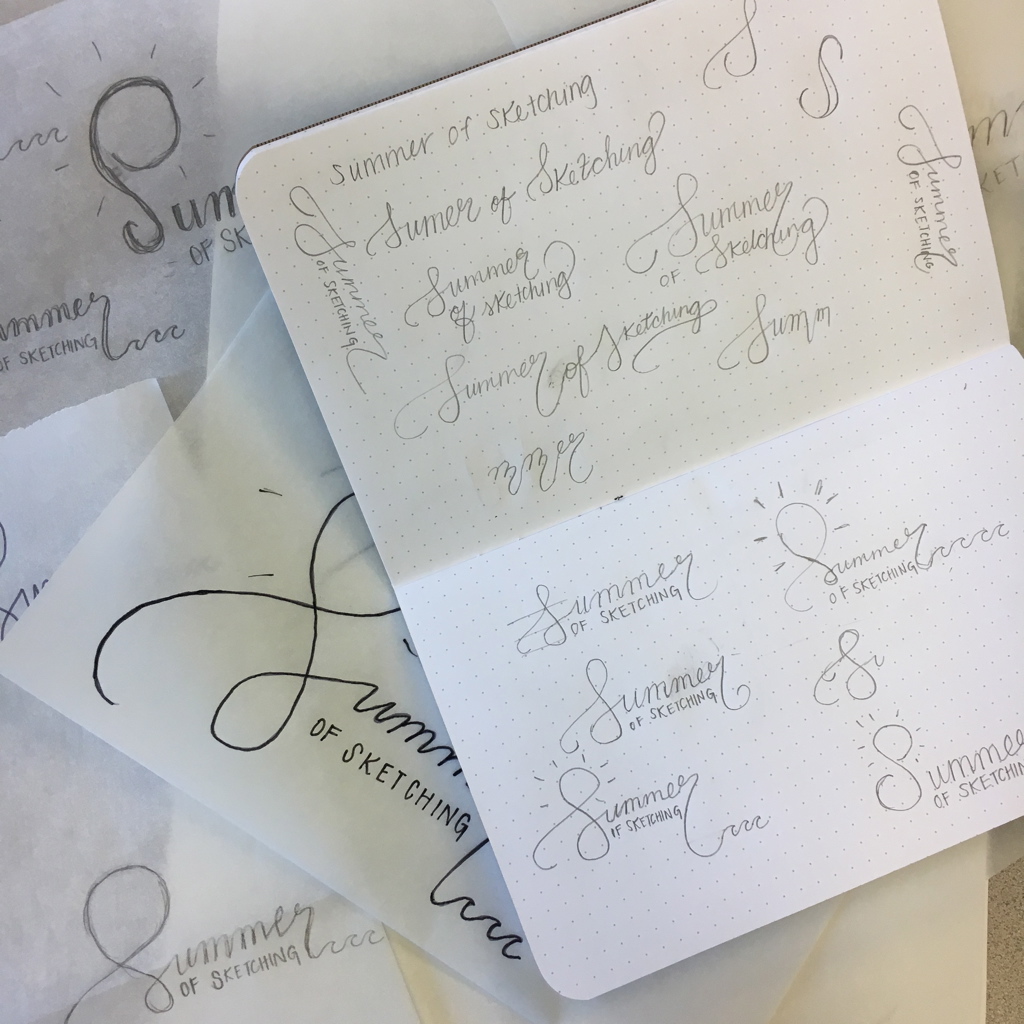 Summer of Sketching
Sumer of Sketching
S
S
Summer
OF SKETCHING
Summer
of sketching
Summer
OF Sketching
Summer
OF SKETCHING
Summer of Sketching
Summ
mmer
Summer
OF SKETCHING
Summer
OF SKETCHING
Summer
OF SKETCHING
Su
Summer
OF SKETCHING
Summer
OF SKETCHIN
Sum
OF SK
ummer
OF SKETCHING
Summ
OF SKETCHING
Summer
OF SKETCHING